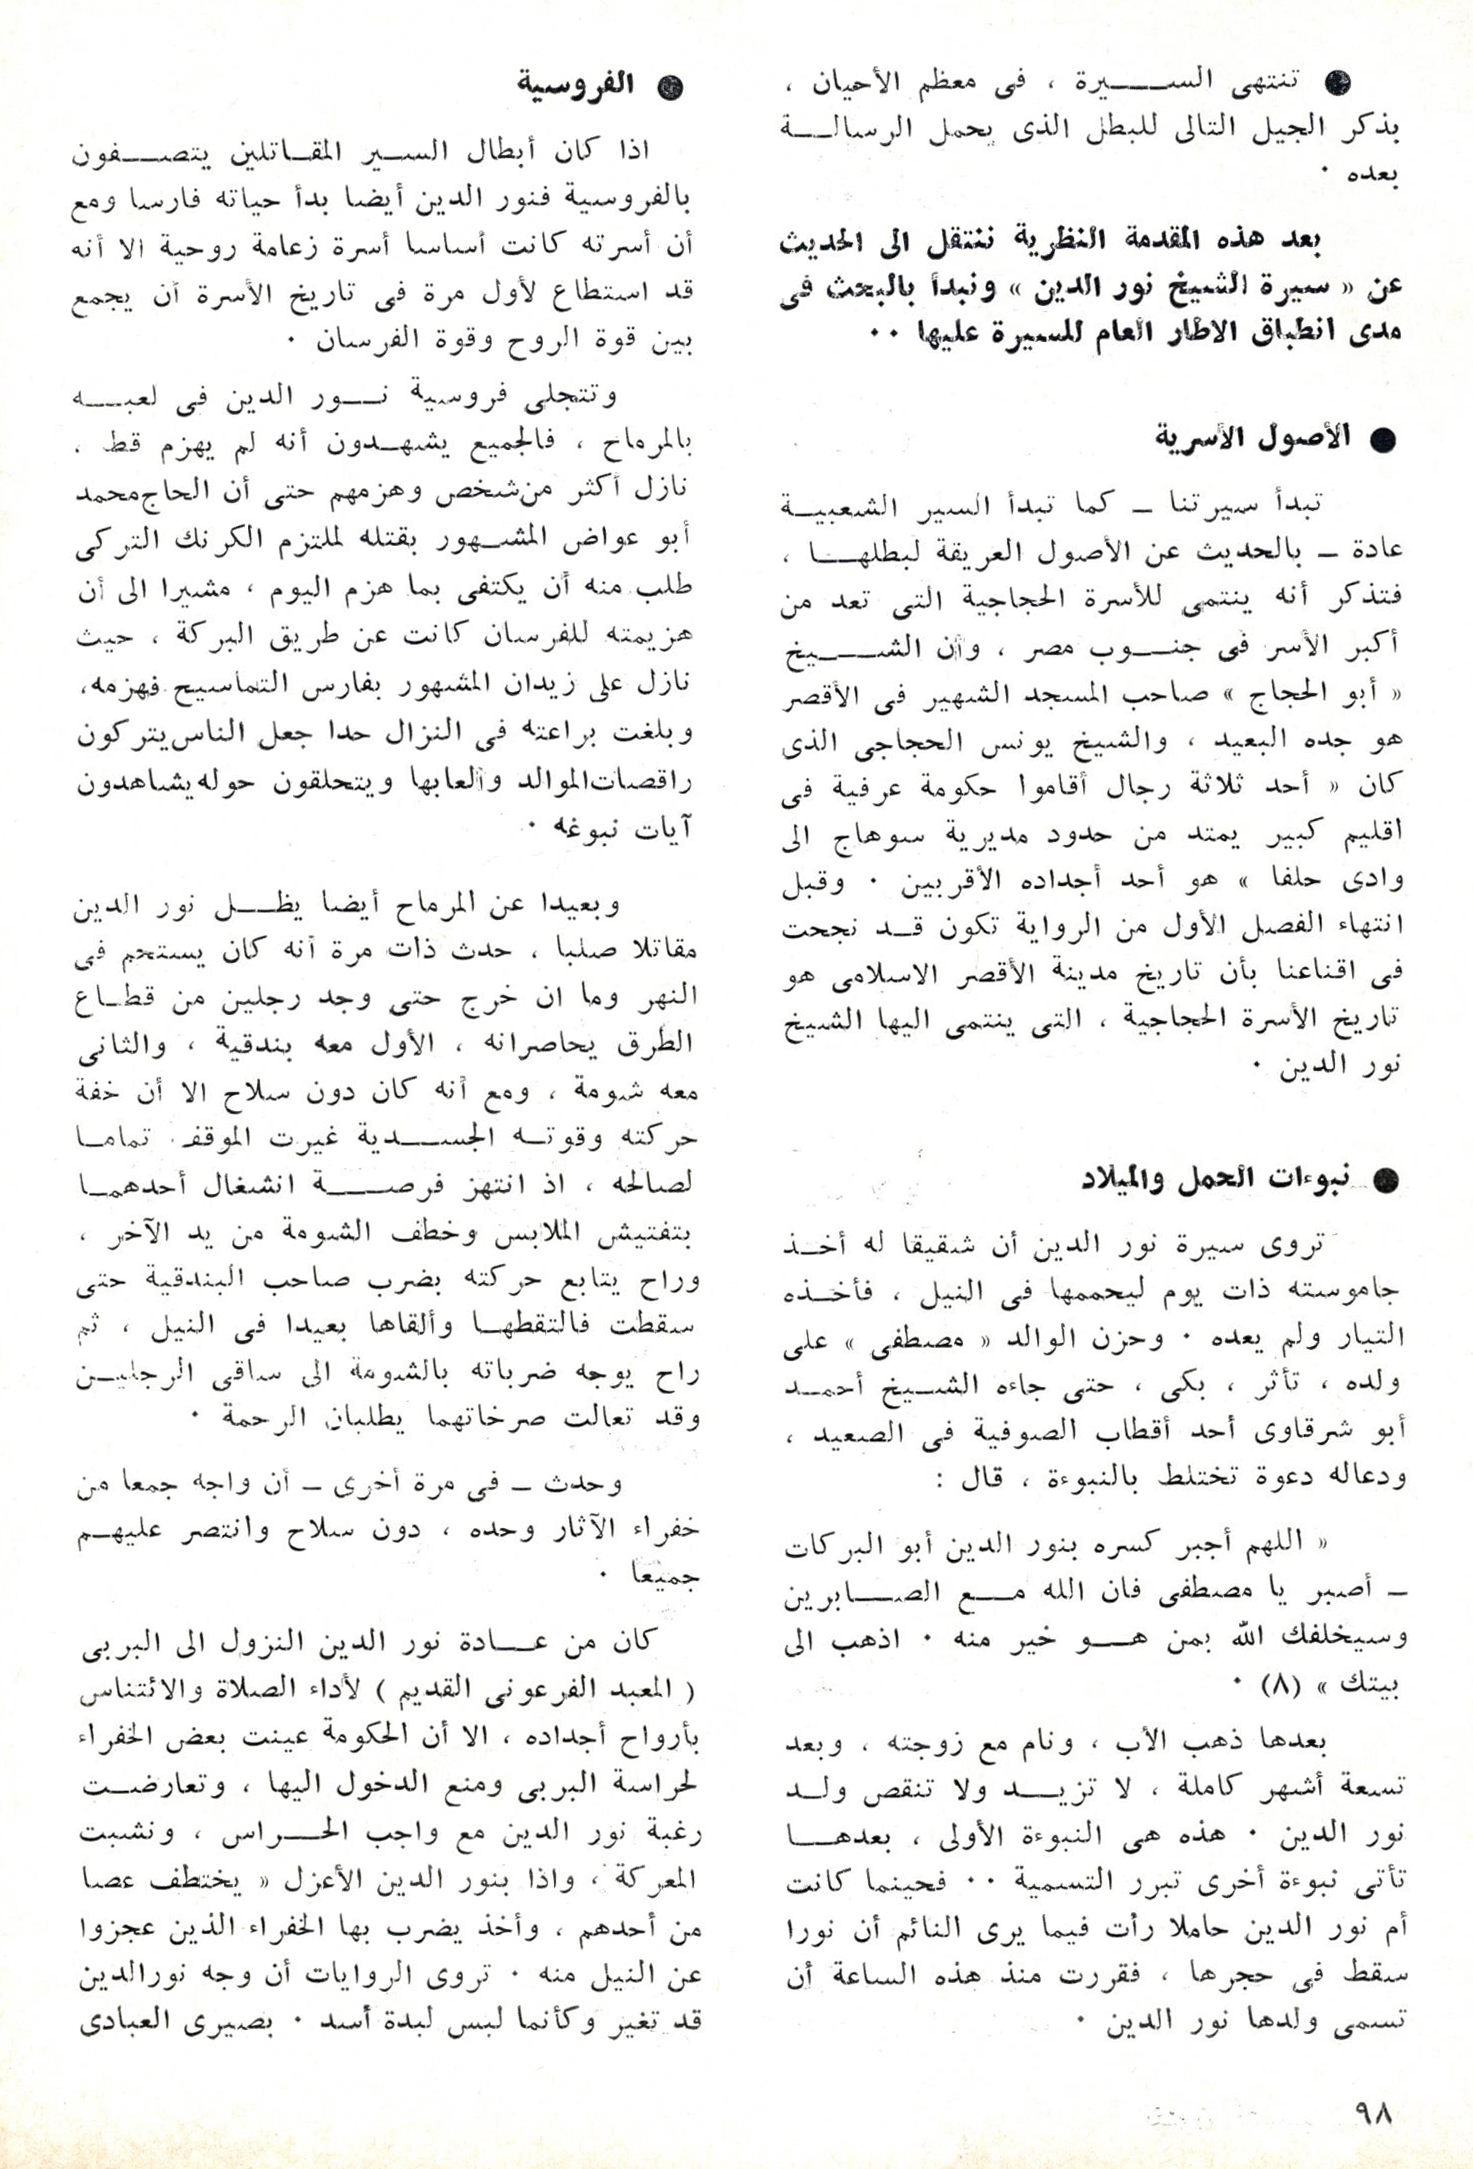 ● تنتهى السيرة ، فى معظم الأحيان ،
بذكر الجيل التالى للبطل الذى يحمل الرسالة
بعده ٠
بعد هذه المقدمة النظرية ننتقل الى الحديث
عن « سيرة الشيخ نور الدين » ونبدأ بالبحث فى
مدى انطباق الاطار العام للسيرة عليها ٠٠
● الأصول الأسرية
تبدأ سيرتنا ــ كما تبدأ السير الشعبية
عادة ــ بالحديث عن الأصول العريقة لبطلها ،
فتذكر أنه ينتمى للأسرة الحجاجية التى تعد من
أكبر الأسر فى جنوب مصر ، وأن الشيخ
« أبو الحجاج » صاحب المسجد الشهير فى الأقصر
هو جده البعيد ، والشيخ يونس الحجاجى الذى
كان « أحد ثلاثة رجال أقاموا حكومة عرفية فى
اقليم كبير يمتد من حدود مديرية سوهاج الى
وادى حلفا » هو أحد أجداده الأقربين ٠ وقبل
انتهاء الفصل الأول من الرواية تكون قد نجحت
فى اقناعنا بأن تاريخ مدينة الأقصر الاسلامى هو
تاريخ الأسرة الحجاجية ، التى ينتمى اليها الشيخ
نور الدين ٠
● نبوءات الحمل والميلاد
تروى سيرة نور الدين أن شقيقا له أخذ
جاموسته ذات يوم ليحممها فى النيل ، فأخذه
التيار ولم يعده ٠ وحزن الوالد « مصطفى » على
ولده ، تأثر ، بكى ، حتى جاءه الشيخ أحمد
أبو شرقاوى أحد أقطاب الصوفية فى الصعيد ،
ودعاله دعوة تختلط بالنبوءة ، قال :
« اللهم أجبر كسره بنور الدين أبو البركات
ــ أصبر يا مصطفى فان الله مع الصابرين
وسيخلفك الله بمن هو خير منه ٠ اذهب الى
بيتك » (٨) ٠
بعدها ذهب الأب ، ونام مع زوجته ، وبعد
تسعة أشهر كاملة ، لا تزيد ولا تنقص ولد
نور الدين ٠ هذه هى النبوءة الأولى ، بعدها
تأتى نبوءة أخرى تبرر التسمية ٠٠ فحينما كانت
أم نور الدين حاملا رأت فيما يرى النائم أن نورا
سقط فى حجرها ، فقررت منذ هذه الساعة أن
تسمى ولدها نور الدين ٠
● الفروسية
اذا كان أبطال السير المقاتلين يتصفون
بالفروسية فنور الدين أيضا بدأ حياته فارسا ومع
أن أسرته كانت أساسا أسرة زعامة روحية الا أنه
قد استطاع لأول مرة فى تاريخ الأسرة أن يجمع
بين قوة الروح وقوة الفرسان ٠
وتتجلى فروسية نور الدين فى لعبه
بالمرماح ، فالجميع يشهدون أنه لم يهزم قط ،
نازل أكثر من شخص وهزمهم حتى أن الحاج محمد
أبو عواض المشهور بقتله لملتزم الكرنك التركى
طلب منه أن يكتفى بما هزم اليوم ، مشيرا الى أن
هزيمته للفرسان كانت عن طريق البركة ، حيث
نازل على زيدان المشهور بفارس التماسيح فهزمه،
وبلغت براعته فى النزال حدا جعل الناس يتركون
راقصات الموالد وألعابها ويتحلقون حوله يشاهدون
آيات نبوغه ٠
وبعيدا عن المرماح أيضا يظل نور الدين
مقاتلا صلبا ، حدث ذات مرة أنه كان يستحم فى
النهر وما ان خرج حتى وجد رجلين من قطاع
الطرق يحاصرانه ، الأول معه بندقية ، والثانى
معه شومة ، ومع أنه كان دون سلاح الا أن خفة
حركته وقوته الجسدية غيرت الموقف تماما
لصالحه ، اذ انتهز فرصة انشغال أحدهما
بتفتيش الملابس وخطف الشومة من يد الآخر ،
وراح يتابع حركته بضرب صاحب البندقية حتى
سقطت فالتقطها وألقاها بعيدا فى النيل ، ثم
راح يوجه ضرباته بالشومة الى ساقى الرجلين
وقد تعالت صرخاتهما يطلبان الرحمة ٠
وحدث ــ فى مرة أخرى ــ أن واجه جمعا من
خفراء الآثار وحده ، دون سلاح وانتصر عليهم
جميعا ٠
كان من عادة نور الدين النزول الى البربى
( المعبد الفرعونى القديم ) لأداء الصلاة والائتناس
بأرواح أجداده ، الا أن الحكومة عينت بعض الخفراء
لحراسة البربى ومنع الدخول اليها ، وتعارضت
رغبة نور الدين مع واجب الحراس ، ونشبت
المعركة ، واذا بنور الدين الأعزل « يختطف عصا
من أحدهم ، وأخذ يضرب بها الخفراء الذين عجزوا
عن النيل منه ٠ تروى الروايات أن وجه نور الدين
قد تغير وكأنما لبس لبدة أسد ٠ بصيرى العبادى
٩٨